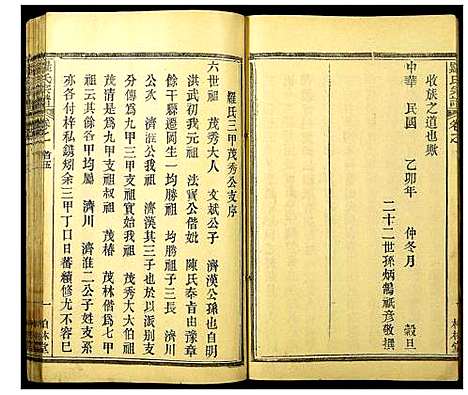 收族之道也歟
中華 民國 乙卯年 仲冬月 穀旦
二十二世孫炳鶴祇彥敬撰
羅氏三甲茂秀公支序
六世祖 茂秀大人 文斌公子 濟漢公孫也自明
洪武初我元式祖 法寶公偕妣 陳氏奉旨由豫章
餘干縣遷岡生一 均勝祖子三長 濟川 
 濟漢其三子也於以派別支
分傳為九甲三甲茂秀祖實始我祖 茂秀大大伯祖
茂清公為九甲叔祖 茂椿 茂林偕為七甲
祖云其餘各甲均屬 濟川 濟淮二公子姓支系
亦各付梓私鐫矧余三甲丁口日蕃續修尤不容已
卷之
首五
一
柏林堂